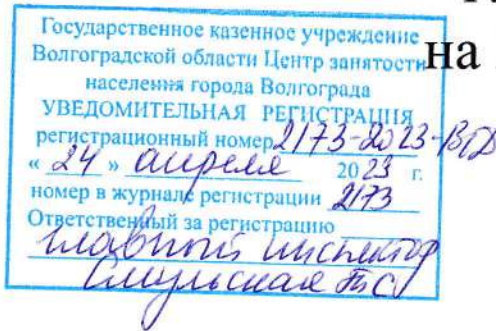 Государственное казенное учреждение
Волгоградской области Центр занятости
населения города Волгограда
УВЕДОМИТЕЛЬНАЯ РЕГИСТРАЦИЯ
регистрационный номер 2173-2023-ВГД
« 24 » апреля 2023 г.
номер в журнале регистрации 2173
Ответственный за регистрацию
главный инспектор
на